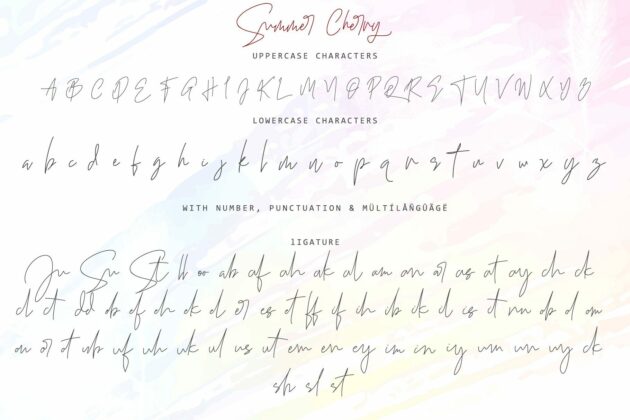 Summer Cherry
UPPERCASE CHARACTERS
A B C D E F G H I J K L M N O P Q R S T U V W X Y Z
LOWERCASE CHARACTERS
a b c d e f g h i j k l m n o p q r s t u v w x y z
WITH NUMBER, PUNCTUATION & MÜLTÍLÅÑGŪÃGË
lIGATURE
Ju Su St ll oo ab af ah ak al am an ar as at ay ch ck
cl ct dd eb ef eh ek el er es et ff if ih ib ik il is it nn ob ol om
on or ot ub uf uh uk ul us ut em en ey im in iy um un uy ck
sh sl st